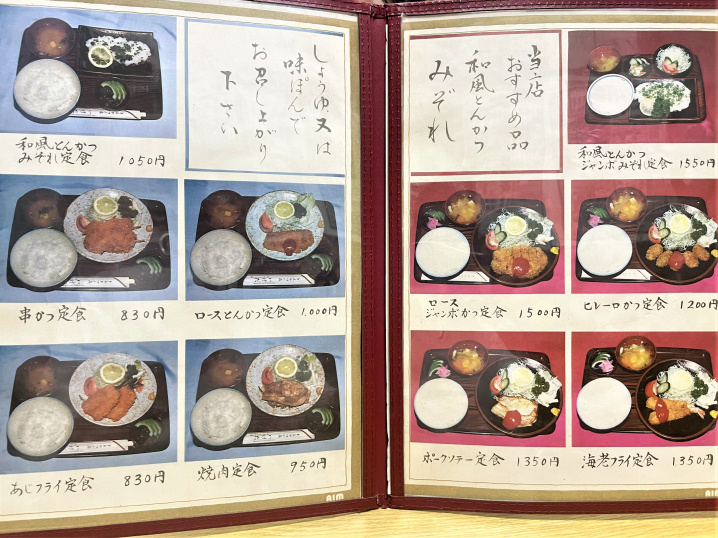 和風とんかつ
みぞれ定食 1050円
しょうゆ又は
味ぽんで
お召し上がり
下さい
串かつ定食 830円
ロースとんかつ定食 1,000円
あじフライ定食 830円
焼肉定食 950円
AIM
当店
おすすめ品
和風とんかつ
みぞれ
和風とんかつ
ジャンボみぞれ定食 1550円
ロース
ジャンボかつ定食 1500円
ヒレ一口かつ定食 1200円
ポークソテー定食 1350円
海老フライ定食 1350円